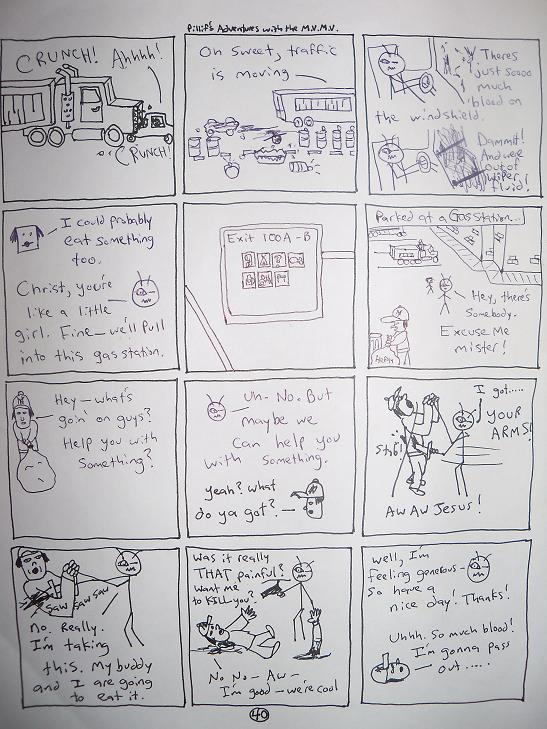 Pillif's Adventures with the M.V.M.V.
CRUNCH! Ahhhh!
CRUNCH!
Oh sweet, traffic
is moving
Theres
just soooo
much
blood on
the windshield.
Dammit!
And we're
out of
wiper
fluid!
I could probably
eat something
too.
Christ, you're
like a little
girl. Fine— we'll pull
into this gas station.
Exit 100A-B
Parked at a Gas Station...
Hey, there's
somebody.
Excuse me
mister!
Hey— what's
goin' on guys?
Help you with
something?
Uh. No. But
maybe we
can help you
with something.
Yeah? what
do ya got?
I got....
YOUR
ARMS!
Stab!
AW AW JESUS!
SAW SAW SAW
No. Really.
I'm taking
this. My buddy
and I are going
to eat it.
Was it really
THAT painful?
Want me
to KILL you?
No No— Aw—
I'm good— we're cool
Well, I'm
feeling generous
so have a
nice day! Thanks!
Uhhh. So much blood!
I'm gonna pass
out.....
40